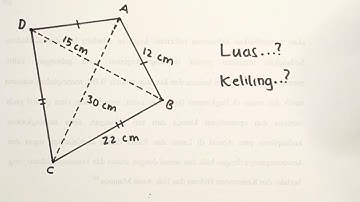 A
D
15 cm
12 cm
Luas...?
B
Keliling..?
30 cm
22 cm
C